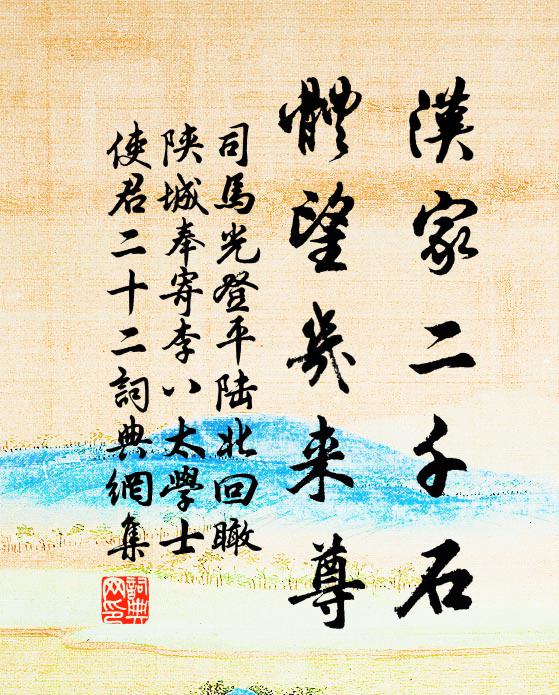 漢家二千石
體望幾来尊
司馬光登平陆北回瞰
陕城奉寄李八太學士
使君二十二詞典網集
詞典
网印